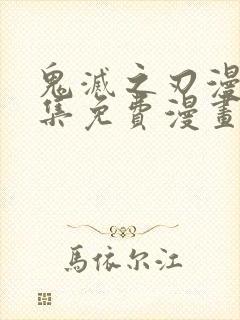 鬼滅之刃漫
集免費漫畫
馬依尔江